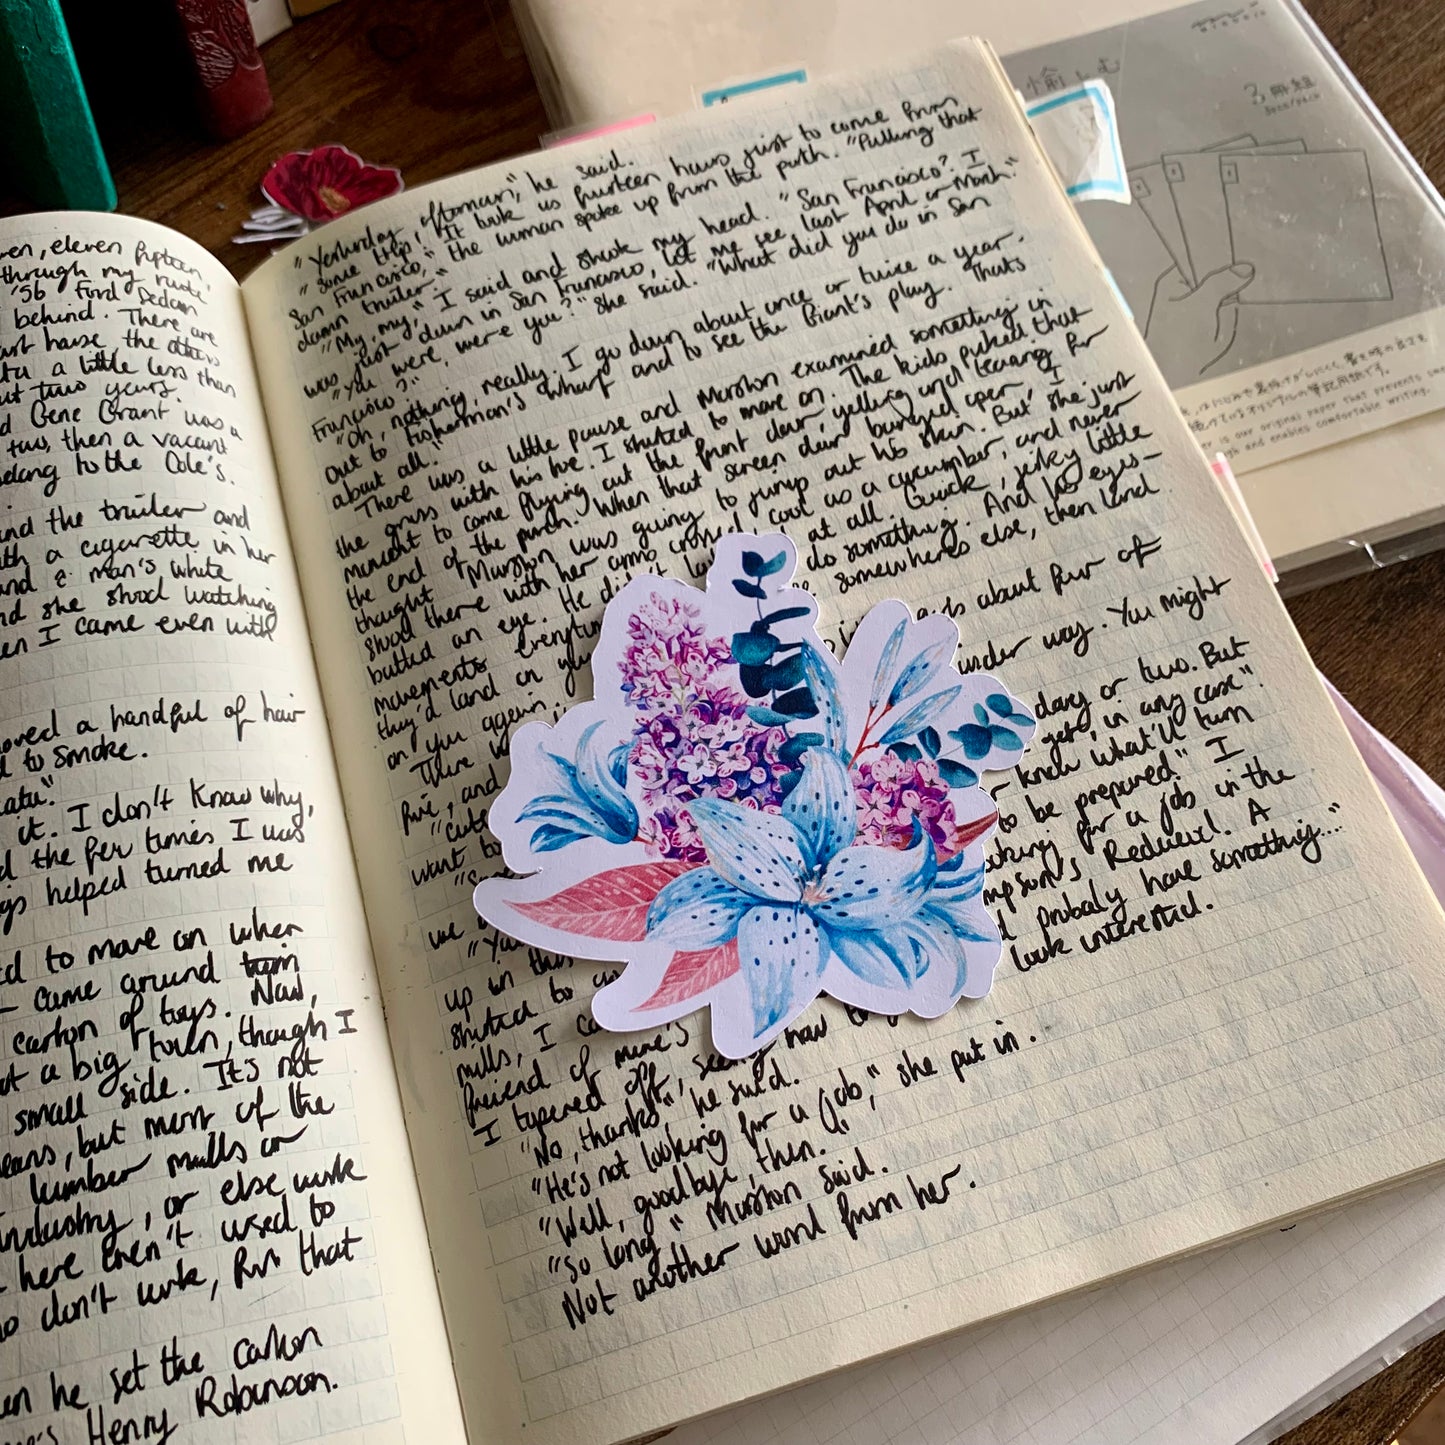 ven, eleven fifteen,
through my route
'56 Ford Sedan
behind. There are
last house, the others
a little less than
but two years.
d Gene Grant was a
two, then a vacant
belong to the Cole's.
and the trailer and
ith a cigarette in her
and a man's white
nd she stood watching
en I came even with
oved a handful of hair
d to smoke.
it. I don't know why,
d the few times I was
helped turned me
d to move on when
- came around turn
carton of toys. Now,
t a big town, though I
small side. It's not
eans, but most of the
lumber mills or
industry, or else work
here aren't used to
o don't work, for that
en he set the carton
Henry Robinson.
"Yesterday afternoon," he said.
"Some trip! It took us fourteen hours just to come from
San Francisco," the woman spoke up from the path. "Pulling that
damn trailer."
"My, my," I said and shook my head. "San Francisco? I
was just down in San Francisco, let me see, last April or March."
"You were, were you?" she said. "What did you do in San
Francisco?"
"Oh, nothing, really. I go down about once or twice a year.
Out to Fisherman's Wharf and to see the Giant's play. That's
about all."
There was a little pause and Marston examined something in
the grass with his toe. I started to move on. The kids picked that
moment to come flying out the front door, yelling and tearing for
the end of the porch. When that screen door banged open, I
thought Marston was going to jump out his skin. But she just
stood there with her arms crossed, cool as a cucumber, and never
batted an eye. He didn't look at all. Quick, jerky little
movements everytime do something. And his eyes-
they'd land on you somewheres else, then land
on you again.
There about four of
five, and
"Cute under way. You might
want to
day or two. But
we get, in any case".
"You know what'll turn
up in this to be prepared." I
started to looking for a job in the
mills, I Simpson's Redwood. A
friend of mine's probaly have something...."
I tapered off, seeing how look interested.
"No, thanks" he said.
"He's not looking for a job," she put in.
"Well, goodbye, then.
"So long" Marston said.
Not another word from her.
MIDORI
3冊組
3pcs/pack
enables comfortable writing.